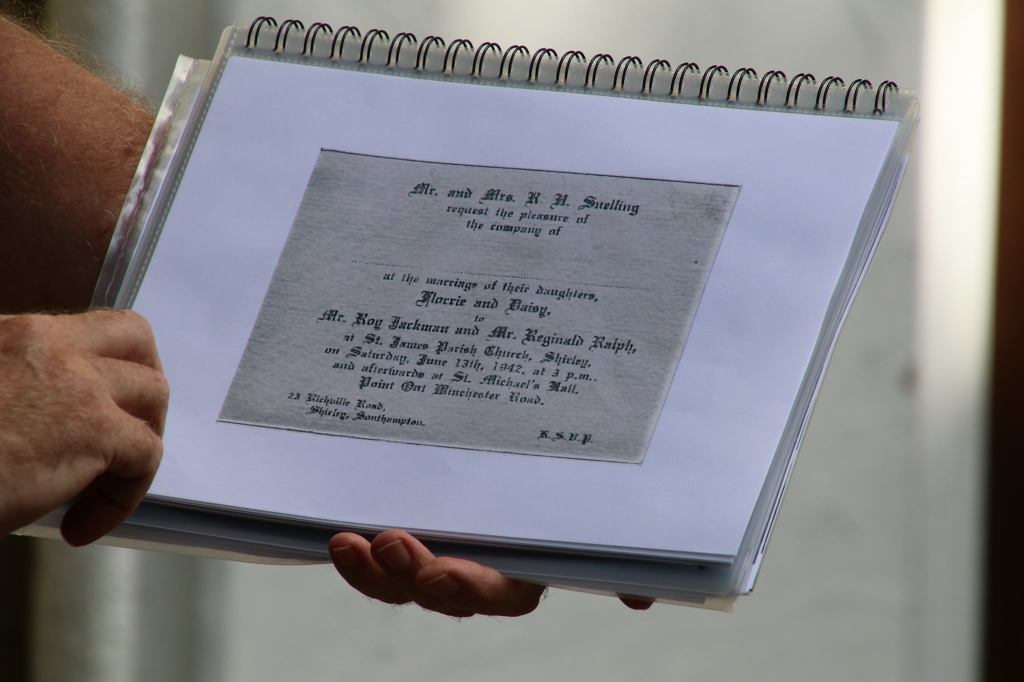 Mr. and Mrs. R. H. Snelling
request the pleasure of
the company of
at the marriage of their daughters,
Florrie and Daisy,
to
Mr. Roy Jackman and Mr. Reginald Ralph,
at St. James Parish Church, Shirley,
on Saturday, June 13th, 1942, at 3 p.m.,
and afterwards at St. Michael's Hall,
Point Out Winchester Road.
23 Richville Road,
Shirley, Southampton.
R.S.V.P.